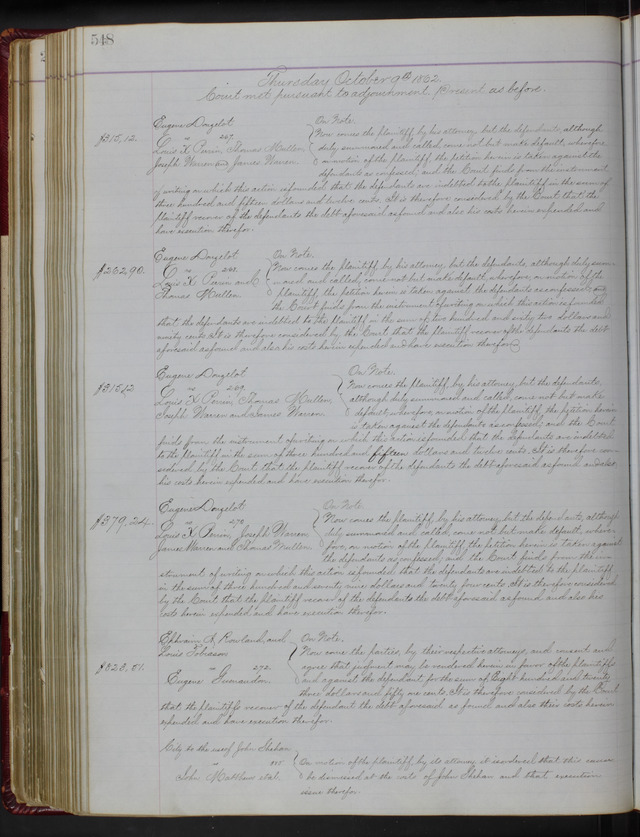 548
Thursday October 9th 1832
Court met pursuant to adjournment. Present as before.
Eugene Dougelot On Note.
$315,12. vs 267. Now comes the plaintiff, by his attorney, but the defendants, although
Louis X. Perrin, Thomas Mullen, duly summoned and called, come not but make default, wherefore
Joseph Warren and James Warren. on motion of the plaintiff, the petition herein is taken against the
defendants as confessed, and the Court finds from the instrument
of writing on which this action is founded that the defendants are indebted to the plaintiff in the sum of
three hundred and fifteen dollars and twelve cents. It is therefore considered by the Court that the
plaintiff recover of the defendants the debt aforesaid as found and also his costs herein expended and
have execution therefor.
Eugene Dougelot On Note.
$262.90. vs Now comes the plaintiff by his attorney, but the defendants, although duly summ-
Louis X. Perrin and oned and called, come not but make default, wherefore, on motion of the
Thomas Mullen. plaintiff, the petition herein is taken against the defendants as confessed, and
the Court finds from the instrument of writing on which this action is founded
that the defendants are indebted to the plaintiff in the sum of two hundred and sixty two dollars and
ninety cents. It is therefore considered by the Court that the plaintiff recover of the defendants the debt
aforesaid as found and also his costs herein expended and have execution therefor.
Eugene Dougelot On Note.
$315,12 vs 269. Now comes the plaintiff by his attorney, but the defendants,
Louis X. Perrin, Thomas Mullen, although duly summoned and called, come not but make
Joseph Warren and James Warren. default, wherefore, on motion of the plaintiff, the petition herein
is taken against the defendants as confessed; and the Court
finds from the instrument of writing on which this action is founded that the defendants are indebted
to the plaintiff in the sum of three hundred and fifteen dollars and twelve cents. It is therefore con-
sidered by the Court that the plaintiff recover of the defendants the debt aforesaid as found and also
his costs herein expended and have execution therefor.
Eugene Dougelot On Note
$379,24. vs 270 Now comes the plaintiff, by his attorney, but the defendants, although
Louis X. Perrin, Joseph Warren duly summoned and called, come not but make default, where-
James Warren and Thomas Mullen. fore, on motion of the plaintiff, the petition herein is taken against
the defendants as confessed and the Court finds from the in-
strument of writing on which this action is founded, that the defendants are indebted to the plaintiff
in the sum of three hundred and seventy nine dollars and twenty four cents. It is therefore considered
by the Court that the plaintiff recover of the defendants the debt aforesaid as found and also his
costs herein expended and have execution therefor.
Ephraim A. Rowland, and On Note.
Louis Now come the parties, by their respective attorneys, and consent and
$823,51. vs 272. agree that judgment may be rendered herein in favor of the plaintiffs
Eugene and against the defendant for the sum of Eight hundred and twenty
three dollars and fifty one cents. It is therefore considered by the Court
that the plaintiffs recover of the defendant the debt aforesaid as found and also their costs herein
expended and have execution therefor.
City to the use of John Shehan
vs On motion of the plaintiff, by its attorney it is ordered that this cause
John et al. be dismissed at the costs of John Shehan and that execution
issue therefor.